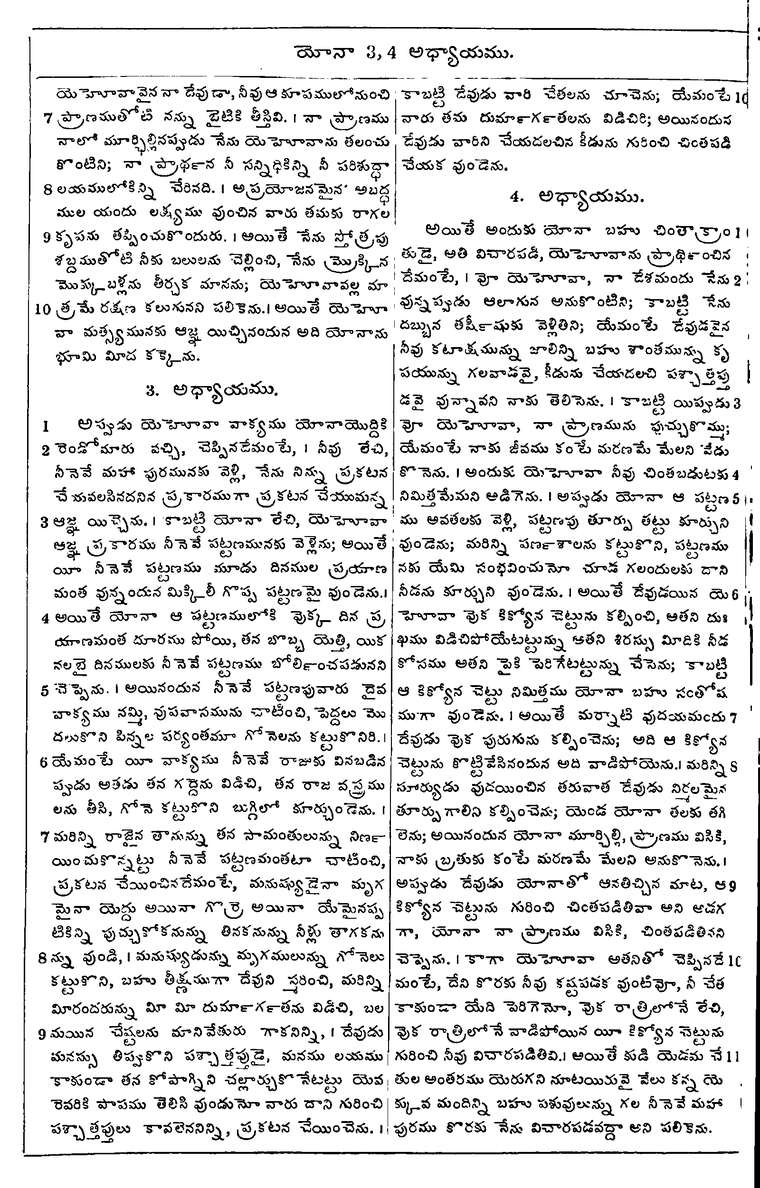 యోనా 3, 4 అధ్యాయము.
యెహోవావైన నా దేవుడా, నీవు ఆ కూపములోనుంచి
7 ప్రాణముతోటి నన్ను బైటికి తీస్తివి. । నా ప్రాణము
నాలో మూర్ఛిల్లినప్పుడు నేను యెహోవాను తలంచు
కొంటిని; నా ప్రార్థన నీ సన్నిధికిన్ని నీ పరిశుద్ధా
8 లయములోకిన్ని చేరినది. । అప్రయోజనమైన అబద్ధ
ముల యందు లక్ష్యము వుంచిన వారు తమకు రాగల
9 కృపను తప్పించుకొందురు. । అయితే నేను స్తోత్రపు
శబ్దముతోటి నీకు బలులను చెల్లించి, నేను మ్రొక్కిన
మొక్కుబళ్లను తీర్చక మానను; యెహోవావల్ల మా
10 త్రమే రక్షణ కలుగునని పలికెను. । అయితే యెహో
వా మత్స్యమునకు ఆజ్ఞ యిచ్చినందున అది యోనాను
భూమి మీద కక్కెను.
3. అధ్యాయము.
1 అప్పుడు యెహోవా వాక్యము యోనాయొద్దికి
2 రెండోమారు వచ్చి, చెప్పినదేమంటే, । నీవు లేచి,
నీనెవే మహా పురమునకు వెళ్లి, నేను నిన్ను ప్రకటన
చేయవలసినదనిన ప్రకారముగా ప్రకటన చేయుమన్న
3 ఆజ్ఞ యిచ్చెను. । కాబట్టి యోనా లేచి, యెహోవా
ఆజ్ఞ ప్రకారము నీనెవే పట్టణమునకు వెళ్లెను; అయితే
యీ నీనెవే పట్టణము మూడు దినముల ప్రయాణ
మంత వున్నందున మిక్కిలీ గొప్ప పట్టణమై వుండెను. ।
4 అయితే యోనా ఆ పట్టణములోకి వొక్క దిన ప్ర
యాణమంత దూరము పోయి, తన బొబ్బ యెత్తి, యిక
నలభై దినములకు నీనెవే పట్టణము బోర్లించపడునని
5 చెప్పెను. । అయినందున నీనెవే పట్టణపువారు దైవ
వాక్యము నమ్మి, వుపవాసమును చాటించి, పెద్దలు మొ
దలుకొని పిన్నల పర్యంతమూ గోనెలను కట్టుకొనిరి. ।
6 యేమంటే యీ వాక్యము నీనెవే రాజుకు వినబడిన
ప్పుడు అతడు తన గద్దెను విడిచి, తన రాజ వస్త్రము
లను తీసి, గోనె కట్టుకొని బుగ్గిలో కూర్చుండెను. ।
7 మరిన్ని రాజైన తానున్ను తన సామంతులున్ను నిర్ణ
యించుకొన్నట్టు నీనెవే పట్టణమంతటా చాటించి,
ప్రకటన చేయించినదేమంటే, మనుష్యుడైనా మృగ
మైనా యెద్దు అయినా గొర్రె అయినా యేమైనప్ప
టికిన్ని పుచ్చుకోకనున్ను తినకనున్ను నీళ్లు తాగకను
8 న్ను వుండి, । మనుష్యుడున్ను మృగములున్ను గోనెలు
కట్టుకొని, బహు తీక్ష్ణముగా దేవుని స్మరించి, మరిన్ని
మీరందరున్ను మీ మీ దుమార్గతను విడిచి, బల
9 నుయిన చేష్టలను మానివేతురు గాకనిన్ని, । దేవుడు
మనస్సు తిప్పుకొని పశ్చాత్తప్తుడై, మనము లయము
కాకుండా తన కోపాగ్నిని చల్లార్చుకొనేటట్టు యెవ
రెవరికి పాపము తెలిసి వుండునో వారు దాని గురించి
పశ్చాత్తప్తులు కావలెననిన్ని, ప్రకటన చేయించెను. ।
కాబట్టి దేవుడు వారి చేతలను చూచెను; యేమంటే 10
వారు తమ దుమార్గతలను విడిచిరి; అయినందున
దేవుడు వారిని చేయదలచిన కీడును గురించి చింతపడి
చేయక వుండెను.
4. అధ్యాయము.
అయితే అందుకు యోనా బహు చింతాక్రాం 1
తుడై, అతి విచారపడి, యెహోవాను ప్రార్థించిన
దేమంటే, । వో యెహోవా, నా దేశమందు నేను 2
వున్నప్పుడు ఆలాగున అనుకొంటిని; కాబట్టి నేను
దబ్బున తర్షీషుకు వెళ్లితిని; యేమంటే దేవుడవైన
నీవు కటాక్షమున్ను జాలిన్ని బహు శాంతమున్ను కృ
పయున్ను గలవాడవై, కీడును చేయదలచి పశ్చాత్తప్తు
డవై వున్నావని నాకు తెలిసెను. । కాబట్టి యిప్పుడు 3
వో యెహోవా, నా ప్రాణమును పుచ్చుకొమ్ము;
యేమంటే నాకు జీవము కంటే మరణమే మేలని వేడు
కొనెను. । అందుకు యెహోవా నీవు చింతబడుటకు 4
నిమిత్తమేమని అడిగెను. । అప్పుడు యోనా ఆ పట్టణ 5
ము అవతలకు వెళ్లి, పట్టణపు తూర్పు తట్టు కూర్చుని
వుండెను; మరిన్ని పర్ణశాలను కట్టుకొని, పట్టణము
నకు యేమి సంభవించునో చూడ గలందులకు దాని
నీడను కూర్చుని వుండెను. । అయితే దేవుడయిన యె 6
హోవా వొక కిక్యోన చెట్టును కల్పించి, ఆతని దుః
ఖము విడిచిపోయేటట్టున్ను ఆతని శిరస్సు మీదికి నీడ
కోసము అతని పైకి పెరిగేటట్టున్ను చేసెను; కాబట్టి
ఆ కిక్యోన చెట్టు నిమిత్తము యోనా బహు సంతోష
ముగా వుండెను. । అయితే మర్నాటి వుదయమందు 7
దేవుడు వొక పురుగును కల్పించెను; అది ఆ కిక్యోన
చెట్టును కొట్టివేసినందున అది వాడిపోయెను. । మరిన్ని 8
సూర్యుడు వుదయించిన తరువాత దేవుడు నిర్మలమైన
తూర్పుగాలిని కల్పించెను; యెండ యోనా తలకు తగి
లెను; అయినందున యోనా మూర్ఛిల్లి, ప్రాణము విసికి,
నాకు బ్రతుకు కంటే మరణమే మేలని అనుకొనెను. ।
అప్పుడు దేవుడు యోనాతో ఆనతిచ్చిన మాట, ఆ 9
కిక్యోన చెట్టును గురించి చింతపడితివా అని అడగ
గా, యోనా నా ప్రాణము విసికి, చింతపడితినని
చెప్పెను. । కాగా యెహోవా అతనితో చెప్పినదే 10
మంటే, దేని కొరకు నీవు కష్టపడక వుంటివో, నీ చేత
కాకుండా యేది పెరిగెనో, వొక రాత్రిలోనే లేచి,
వొక రాత్రిలోనే వాడిపోయిన యీ కిక్యోన చెట్టును
గురించి నీవు విచారపడితివి. । ఆయితే కుడి యెడమ చే 11
తుల అంతరము యెరుగని నూటయిరువై వేలు కన్న యె
క్కువ మందిన్ని బహు పశువులున్ను గల నీనెవే మహా
పురము కొరకు నేను విచారపడవద్దా అని పలికెను.